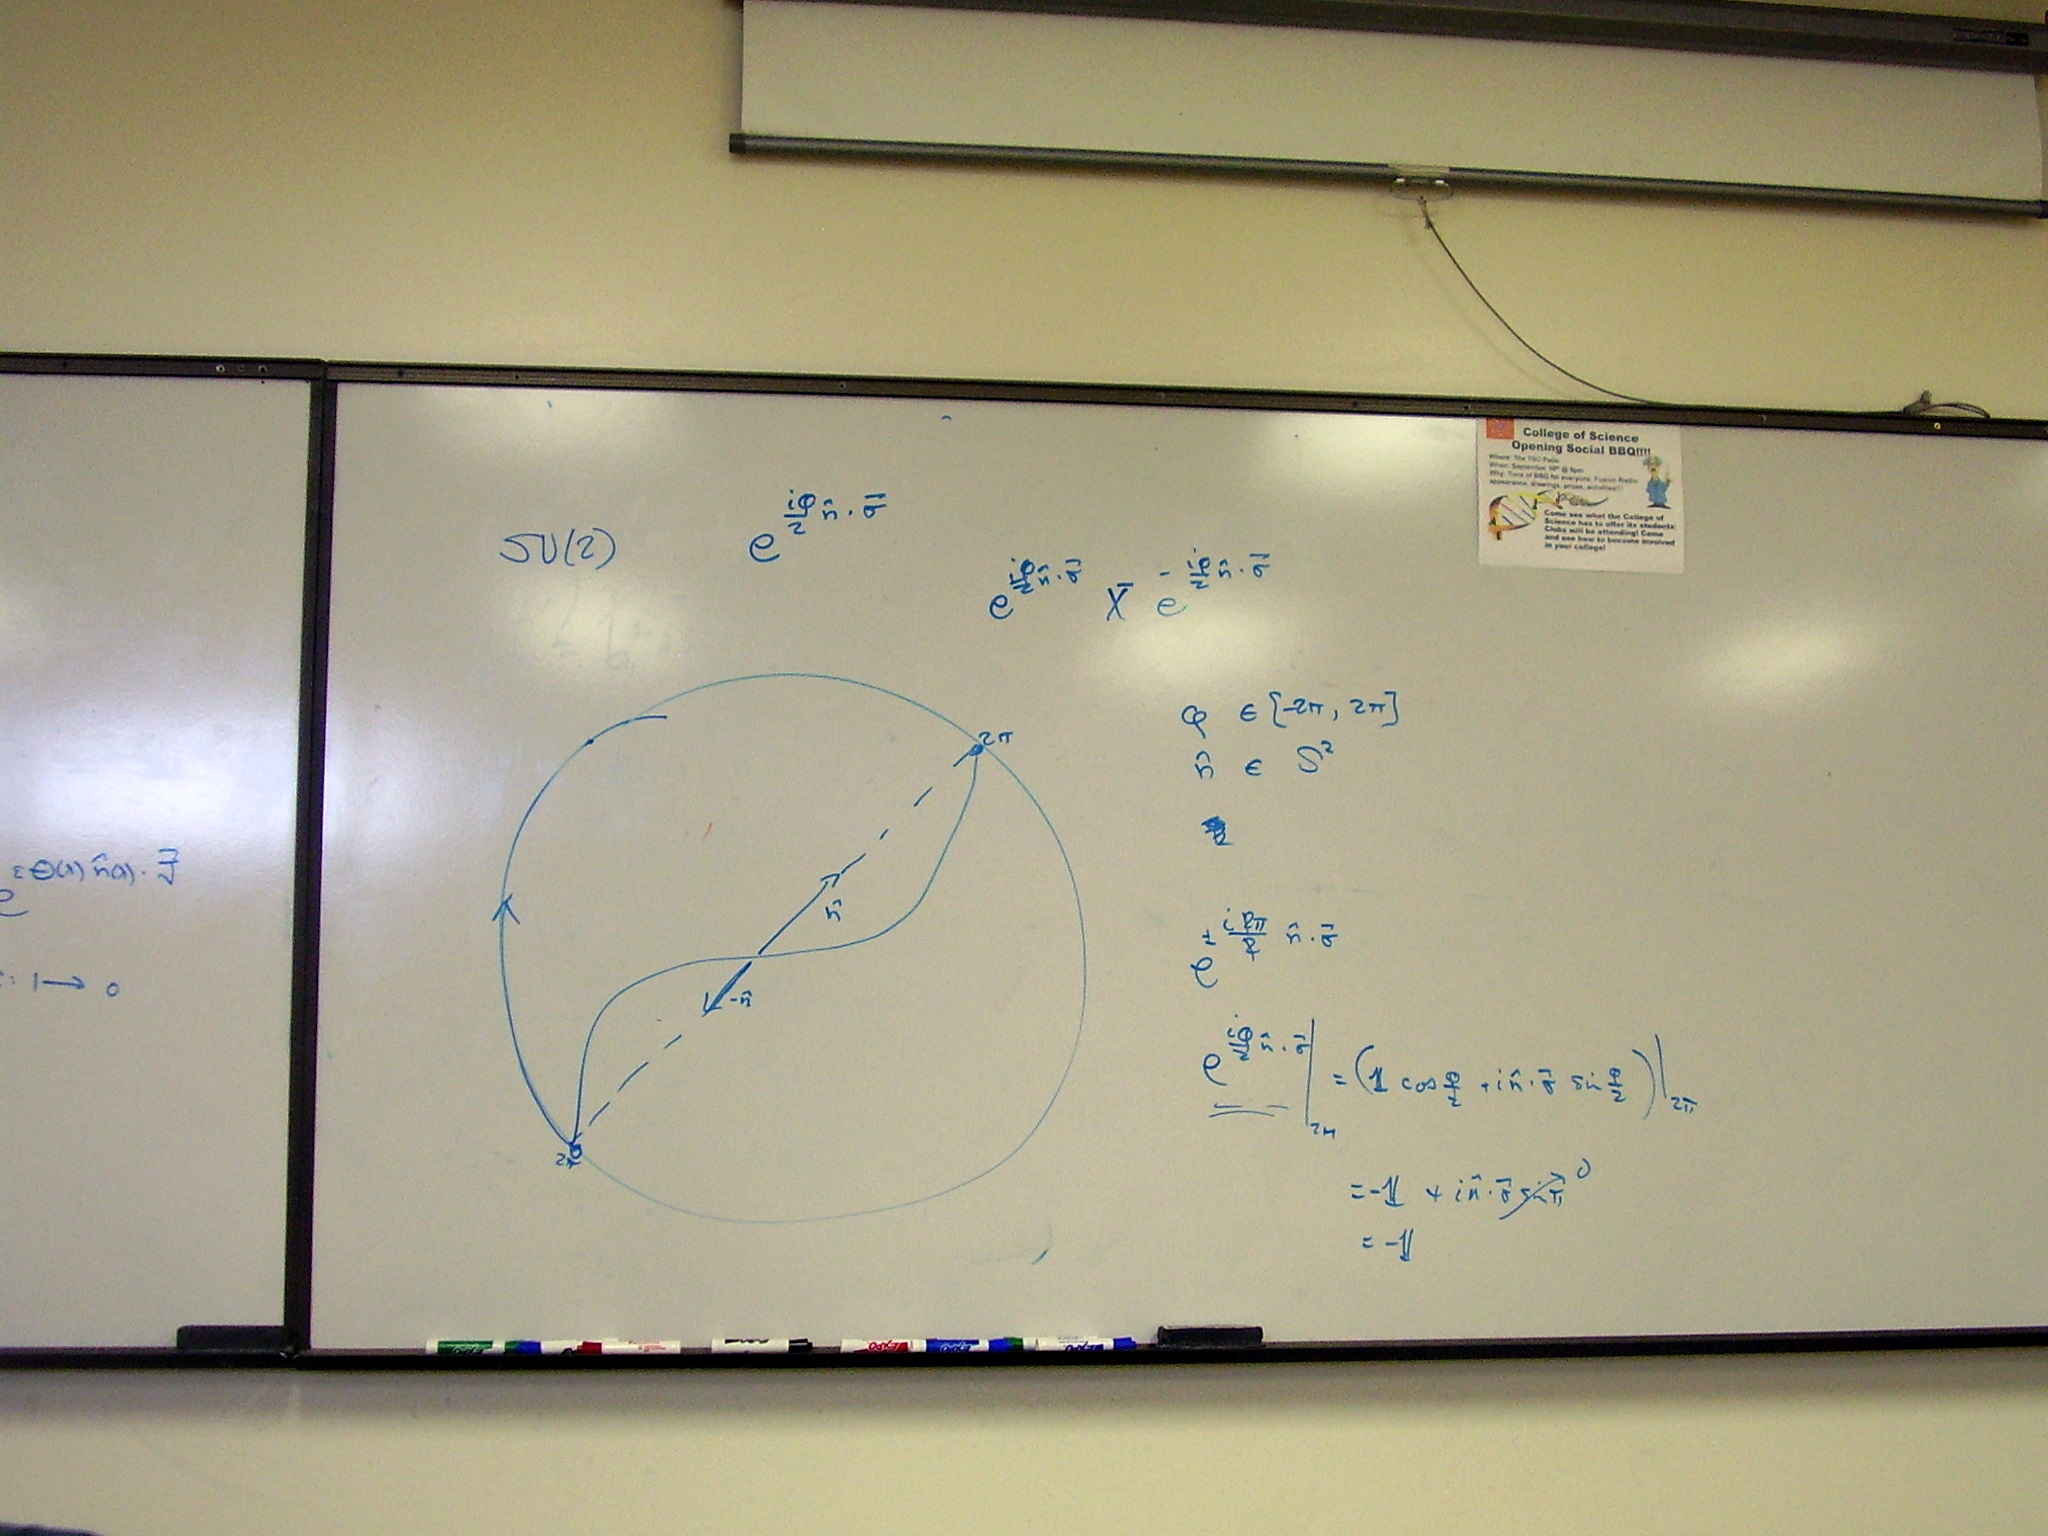 SU(2)
e^{\frac{iφ}{2} n̂ · σ⃗}
e^{\frac{iφ}{2} n̂ · σ⃗} X⃗ e^{-\frac{iφ}{2} n̂ · σ⃗}
φ ∈ [-2π, 2π]
n̂ ∈ S²
2π
n̂
-n̂
2π
e^{± \frac{i2π}{2} n̂ · σ⃗}
e^{\frac{iφ}{2} n̂ · σ⃗} |_{2π} = (𝟙 cos \frac{φ}{2} + i n̂ · σ⃗ sin \frac{φ}{2}) |_{2π}
= -𝟙 + i n̂ · σ⃗ sin π 0
= -𝟙
e^{ε Θ(x) n̂(x) · J⃗}
: 1 → 0
College of Science
Opening Social BBQ!!!!
Where: The TSC Patio
When: September 16th @ 5pm
Why: Tons of BBQ for everyone, Fusion Radio
appearance, drawings, prizes, activities!!!
Come see what the College of
Science has to offer its students
Clubs will be attending! Come
and see how to become involved
in your college!
EXPO
EXPO
EXPO
EXPO